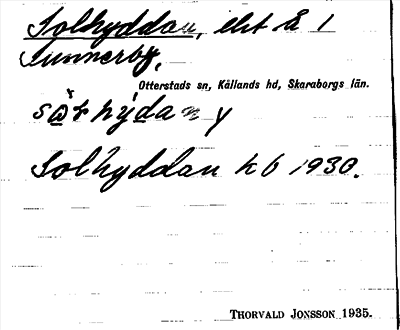 Solhyddan, ent å 1
Sunnerby,
Otterstads sn, Kållands hd, Skaraborgs län.
Solhyddan kb 1930.
THORVALD JONSSON 1935.